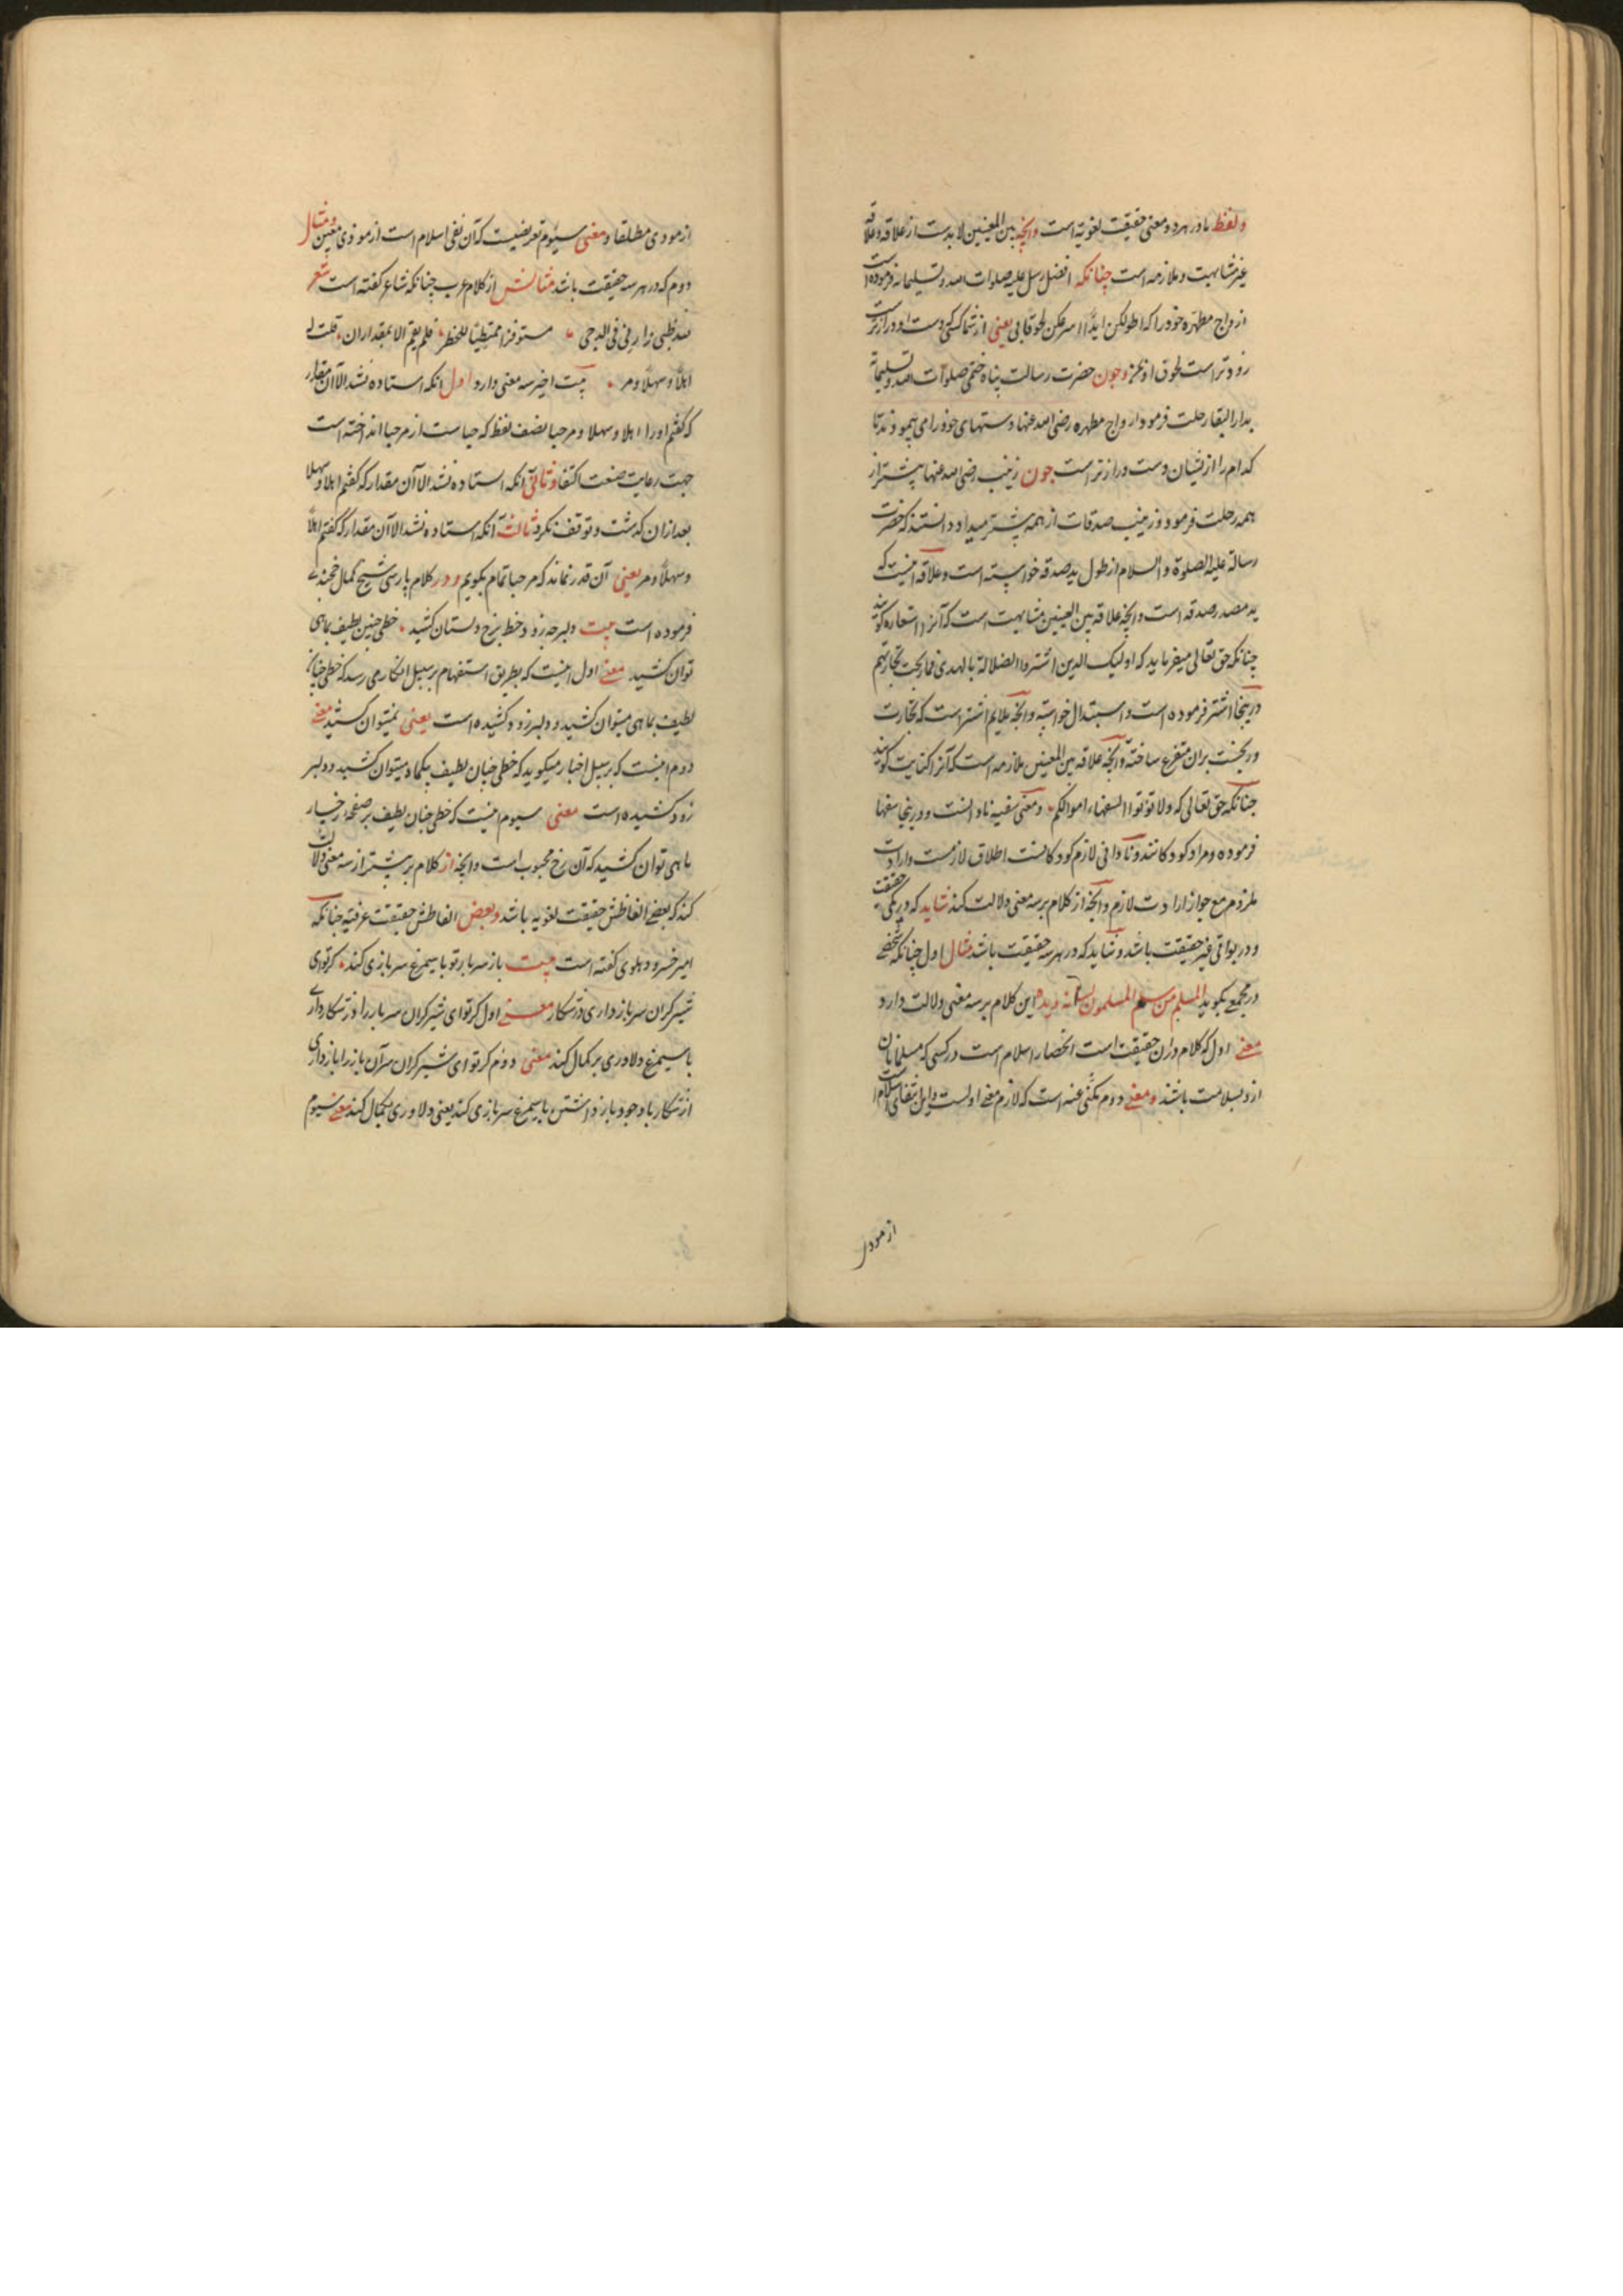 ولفظ ید در هر دو معنی حقیقت لغویه است وانچه بین المعنیین لابدست از علاقه وعلاقه
غیر مشابهت وملازمه است چنانکه افضل رسل علیه صلوات الله وتسلیماته فرموده است
ازواج مطهره خود را که اطولکن یدا اسرعکن لحوقا بی یعنی از شما کسی که دست او درازتر است
زودتر است لحوق او بمن وچون حضرت رسالت پناه ختمی صلوات الله وتسلیماته
بدار البقا رحلت فرمود ازواج مطهره رضی الله عنها دستهای خود را می پیمودند تا
کدام را از یشان دست درازتر است چون زینب رضی الله عنها پیشتر از
همه رحلت فرمود وزینب صدقات از همه بیشتر میداد دانستند که حضرت
رسالة علیه الصلوة والسلام از طول ید صدقه خواسته است وعلاقه اینست که
ید مصدر صدقه است وانچه علاقه بین المعنیین مشابهت است که آنرا استعاره گویند
چنانکه حق تعالی میفرماید که اولیک الذین اشتروا الضلالة بالهدی فما ربحت تجارتهم
درینجا اشترا فرموده است واستبدال خواسته وانچه ملایم اشترا است که تجارت
وربحست بران متفرع ساخته وانچه علاقه بین المعنیین ملازمه است که آنرا کنایت گویند
چنانکه حق تعالی که ولا توتوا السفهاء اموالکم ومعنی سفیه نادانست ودرینجا سفها
فرموده ومراد کودکانند ونادانی لازم کودکانست اطلاق لازمست وارادت
ملزوم مع جواز ارادت لازم وانچه از کلام بر سه معنی دلالت کند شاید که در یکی حقیقت
ودر بواقی غیر حقیقت باشد وشاید که در هر سه حقیقت باشد مثال اول چنانکه شخصی
در مجمع بگوید المسلم من سلم المسلمون لسانه ویده این کلام بر سه معنی دلالت دارد
معنی اول که کلام دران حقیقت است انحصار اسلام است در کسی که مسلمانان
ازو بسلامت باشند ومعنی دوم مکنی عنه است که لازم معنی اولست واین انتفای اسلام است
از موذی
از موذی مطلقا ومعنی سیوم تعریضیست که آن نفی اسلام است از موذی معین ومثال
دوم که در هر سه حقیقت باشد مثالش از کلام عرب چنانکه شاعر گفته است شعر
لله ظبی زارنی فی الدجی مستوفزا ممتطیا للخطر فلم یقم الا بمقدار ان قلت له
اهلا وسهلا ومر بیت اخیر سه معنی دارد اول انکه استاده نشد الا آن مقدار
که گفتم اورا اهلا وسهلا ومرحبا نصف لفظ که حباست از مرحبا انداخته است
جهت رعایت صنعت اکتفا وثانی انکه استاده نشد الا آن مقدار که گفتم اهلا وسهلا
بعد ازان گذشت وتوقف نکرد ثالث انکه استاده نشد الا آن مقدار که گفتم اهلا
وسهلا ومر یعنی آن قدر نماند که مرحبا تمام بگویم ودر کلام پارسی شیخ کمال خجندی
فرموده است بیت دلبر چه زود خط برخ دلستان کشید خطی چنین لطیف بماهی
توان کشید معنی اول اینست که بطریق استفهام بر سبیل انکار می رسد که خطی چنان
لطیف بماهی میتوان کشید ودلبر زود کشیده است یعنی نمیتوان کشید معنی
دوم اینست که بر سبیل اخبار میگوید که خطی چنان لطیف بیکماه میتوان کشید ودلبر
زود کشیده است معنی سیوم اینست که خطی چنان لطیف بر صفحه رخسار
ماهی توان کشید که آن رخ محبوب است وانچه از کلام بر بیشتر از سه معنی دلالت
کند که بعضی الفاظش حقیقت لغویه باشد وبعض الفاظش حقیقت عرفیه چنانکه
امیر خسرو دهلوی گفته است بیت باز سربار تو با سیمرغ سربازی کند گر تو ای
شیرگران سرباز داری در شکار معنی اول گر تو ای شیرگران سرباز را در شکار داری
با سیمرغ دلاوری بر کمال کند معنی دوم گر تو ای شیرگران سرآن باز را باز داری
از شکار باوجود باز داشتن با سیمرغ سربازی کند یعنی دلاوری بکمال کند معنی سیوم